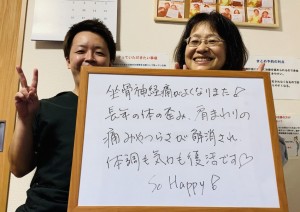 坐骨神経痛がよくなりました♪
長年の体の歪み、肩まわりの
痛みやつらさが解消され
体調も気力も復活です♡
So Happy♪